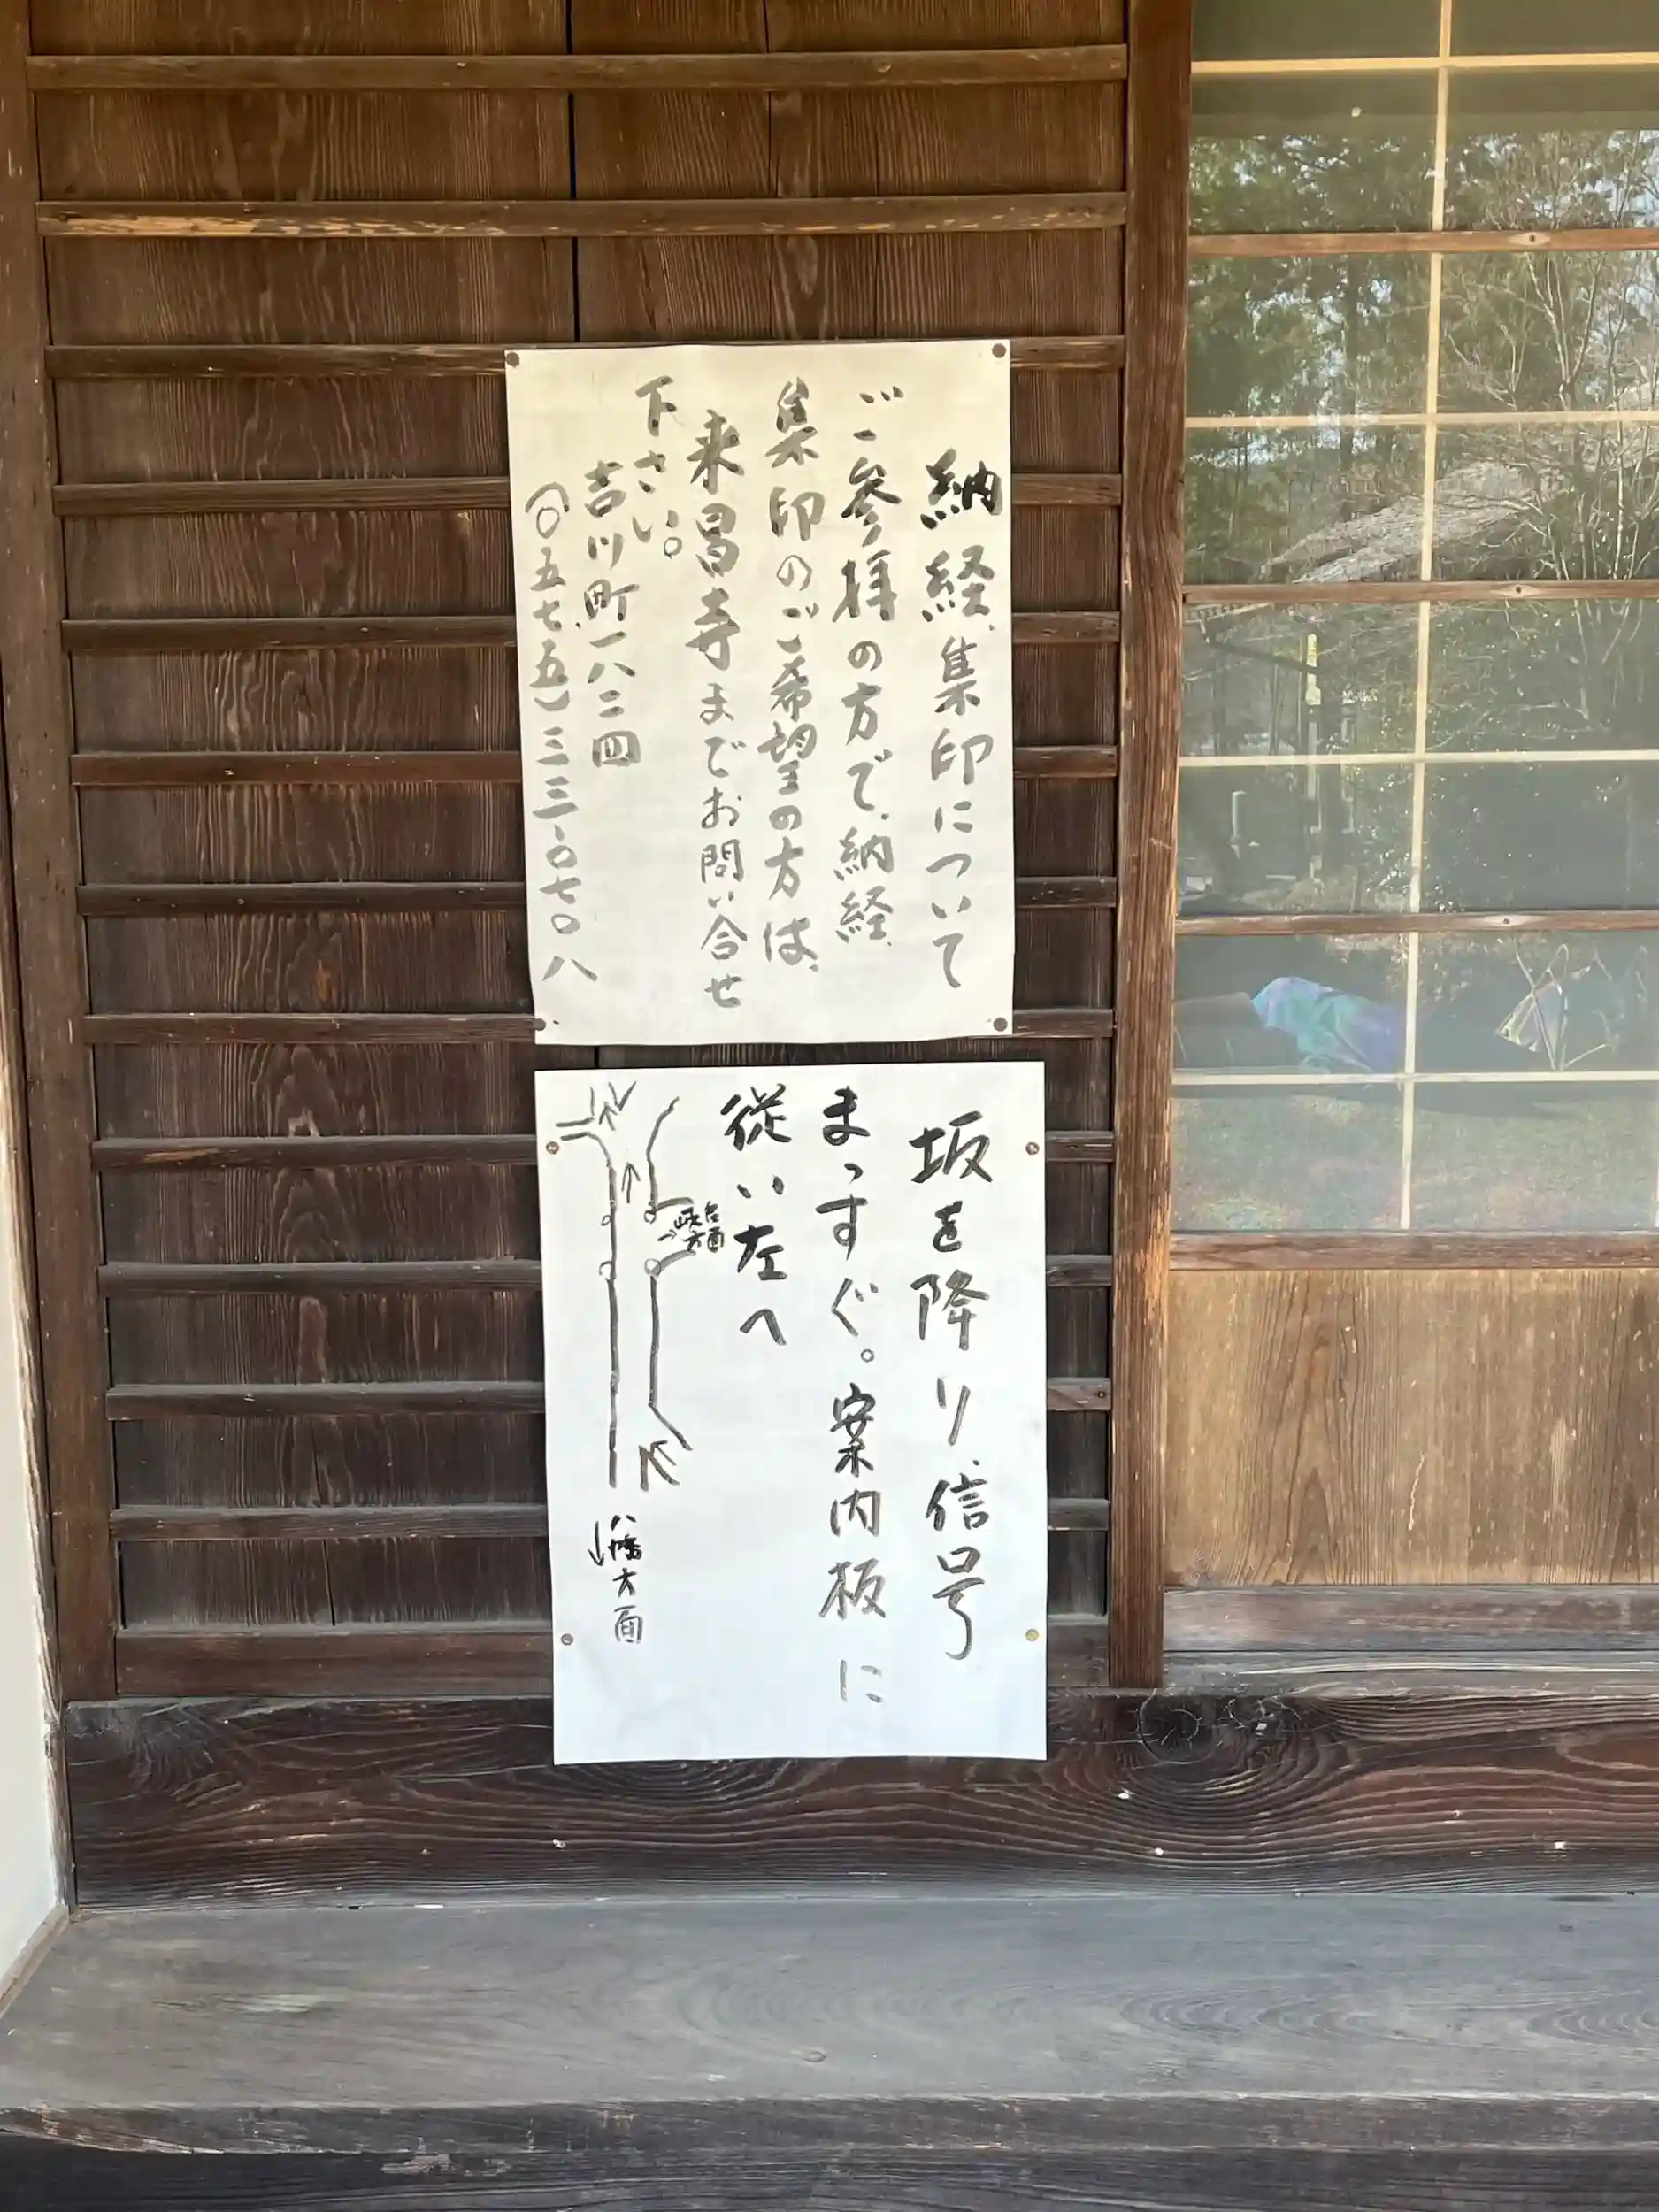 納経、集印について
ご参拝の方で、納経、
集印のご希望の方は、
来昌寺までお問い合せ
下さい。
吉川町一八二四
(〇五七五)三三、〇七〇八
坂を降り、信号
まっすぐ。案内板に
従い左へ
名
岐阜方面
八幡方面